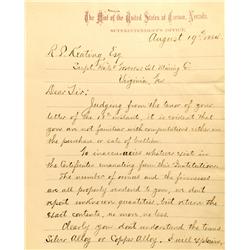 The Mint of the United States at Carson, Nevada.
SUPERINTENDENT'S OFFICE
August 19th 1884
R. P. Keating, Esq
Supt. Hale & Norcross Sil. Mining Co
Virginia, Nev
Dear Sir:
Judging from the tenor of your
letter of the instant, it is evident that
you are not familiar with computations either in
the purchase or sale of bullion.
No inaccuracies whatever exist in
the Certificates emanating from this Institution.
The number of ounces and the fineness
are all properly rendered to you, we don't
report unknown quantities, but return the
exact contents, no more, no less.
Clearly you don't understand the terms
Silver Alloy or Copper Alloy. I will explain,